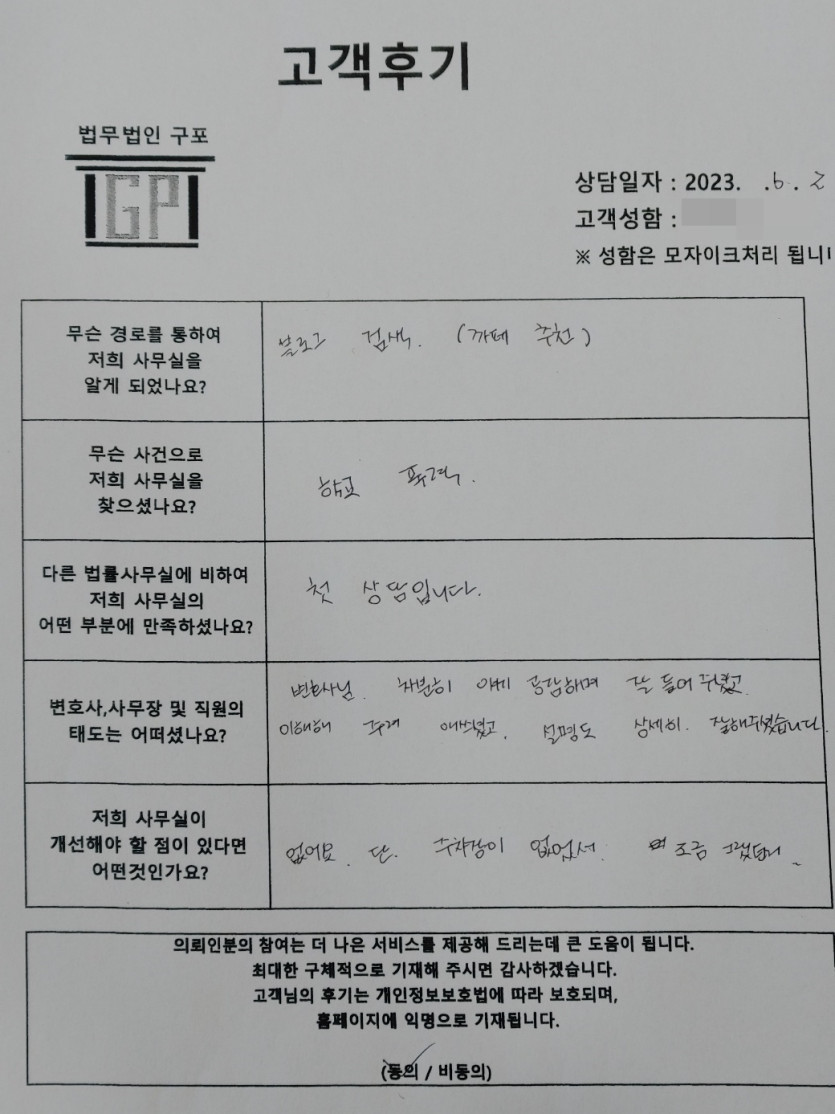 고객후기
법무법인 구포
GP
상담일자 : 2023. .6. 2
고객성함 :
※ 성함은 모자이크처리 됩니
무슨 경로를 통하여
저희 사무실을
알게 되었나요?
블로그 검색. (까페 추천)
무슨 사건으로
저희 사무실을
찾으셨나요?
학교 폭력.
다른 법률사무실에 비하여
저희 사무실의
어떤 부분에 만족하셨나요?
첫 상담입니다.
변호사,사무장 및 직원의
태도는 어떠셨나요?
변호사님. 차분히 얘기 공감하며 잘 들어 주셨고
이해해 주려 애쓰셨고, 설명도 상세히. 잘해주셨습니다.
저희 사무실이
개선해야 할 점이 있다면
어떤것인가요?
없어요. 단. 주차장이 없어서. 조금
의뢰인분의 참여는 더 나은 서비스를 제공해 드리는데 큰 도움이 됩니다.
최대한 구체적으로 기재해 주시면 감사하겠습니다.
고객님의 후기는 개인정보보호법에 따라 보호되며,
홈페이지에 익명으로 기재됩니다.
(동의 / 비동의)